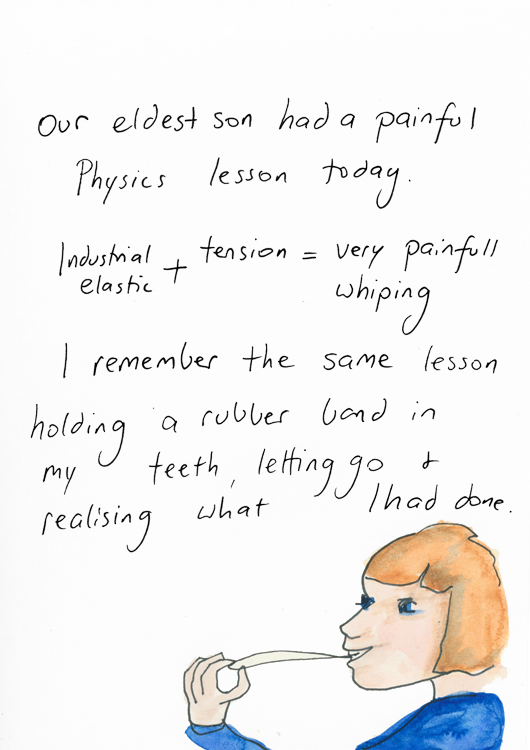 Our eldest son had a painful
Physics lesson today.
Industrial elastic + tension = very painfull whiping
I remember the same lesson
holding a rubber band in
my teeth, letting go &
realising what I had done.